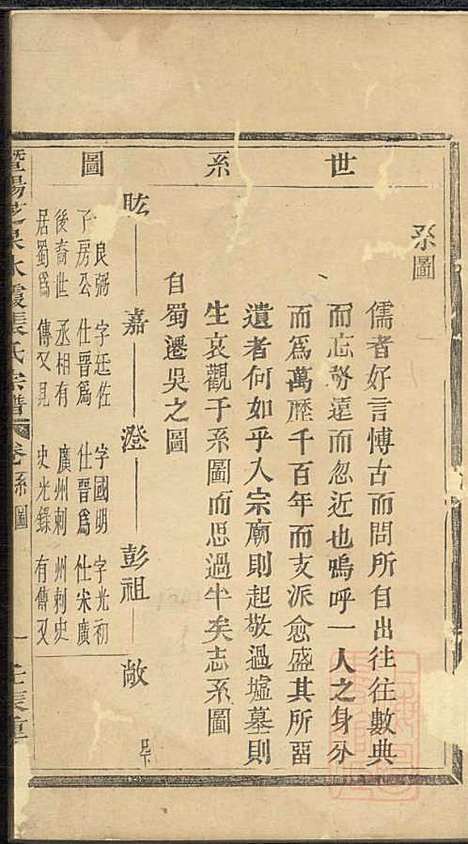 世系圖
系圖
儒者好言博古而問所自出往往數典
而忘勢遠而忽近也嗚呼一人之身分
而為萬歷千百年而支派愈盛其所留
遺者何如乎入宗廟則起敬過墟墓則
生哀觀于系圖而思過半矣志系圖
自蜀遷吳之圖
昡 嘉 澄 彭祖 敞
良弼
子房公
後裔世
居蜀為
字廷佐
仕晉為
丞相有
傳又見
字國明
仕晉為
廣州刺
史光錄
字光初
仕宋廣
州刺史
有傳又
張氏宗譜 卷 系圖 一